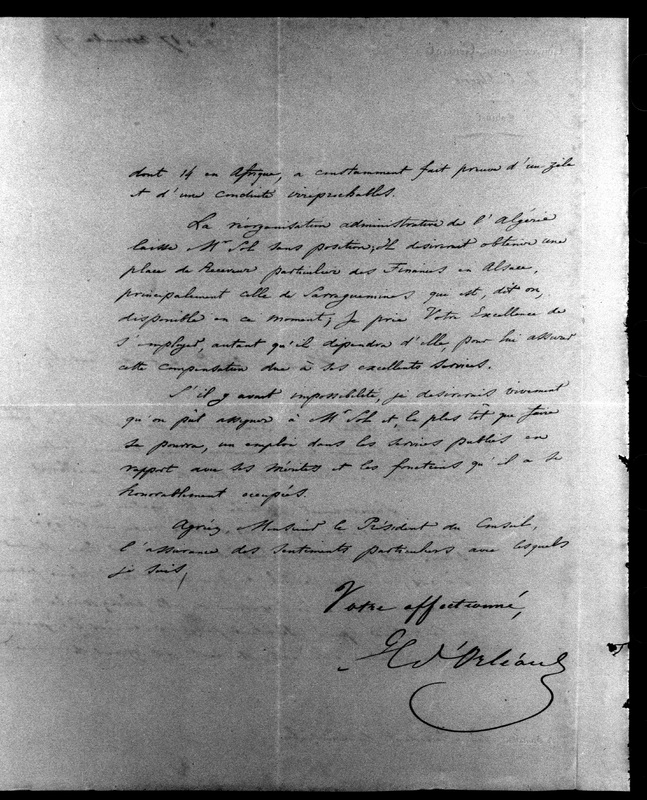 dont 14 en Afrique, a constamment fait preuve d'un zèle
et d'une conduite irréprochables.
La réorganisation administrative de l'Algérie
laisse Mr Sol sans position; Il désirerait obtenir une
place de Receveur particulier des Finances en Alsace,
principalement celle de Sarreguemines qui est, dit on,
disponible en ce moment; Je prie Votre Excellence de
s'employer, autant qu'il dépendra d'elle, pour lui assurer
cette compensation due à ses excellents services.
S'il y avait impossibilité, je désirerais vivement
qu'on pût assigner à Mr Sol et, le plus tôt que faire
se pourra, un emploi dans les services publics en
rapport avec ses mérites et les fonctions qu'il a si
honorablement occupées.
Agréez, Monsieur le Président du Conseil,
l'assurance des sentiments particuliers avec lesquels
je suis,
Votre affectionné,
H d'Orléans